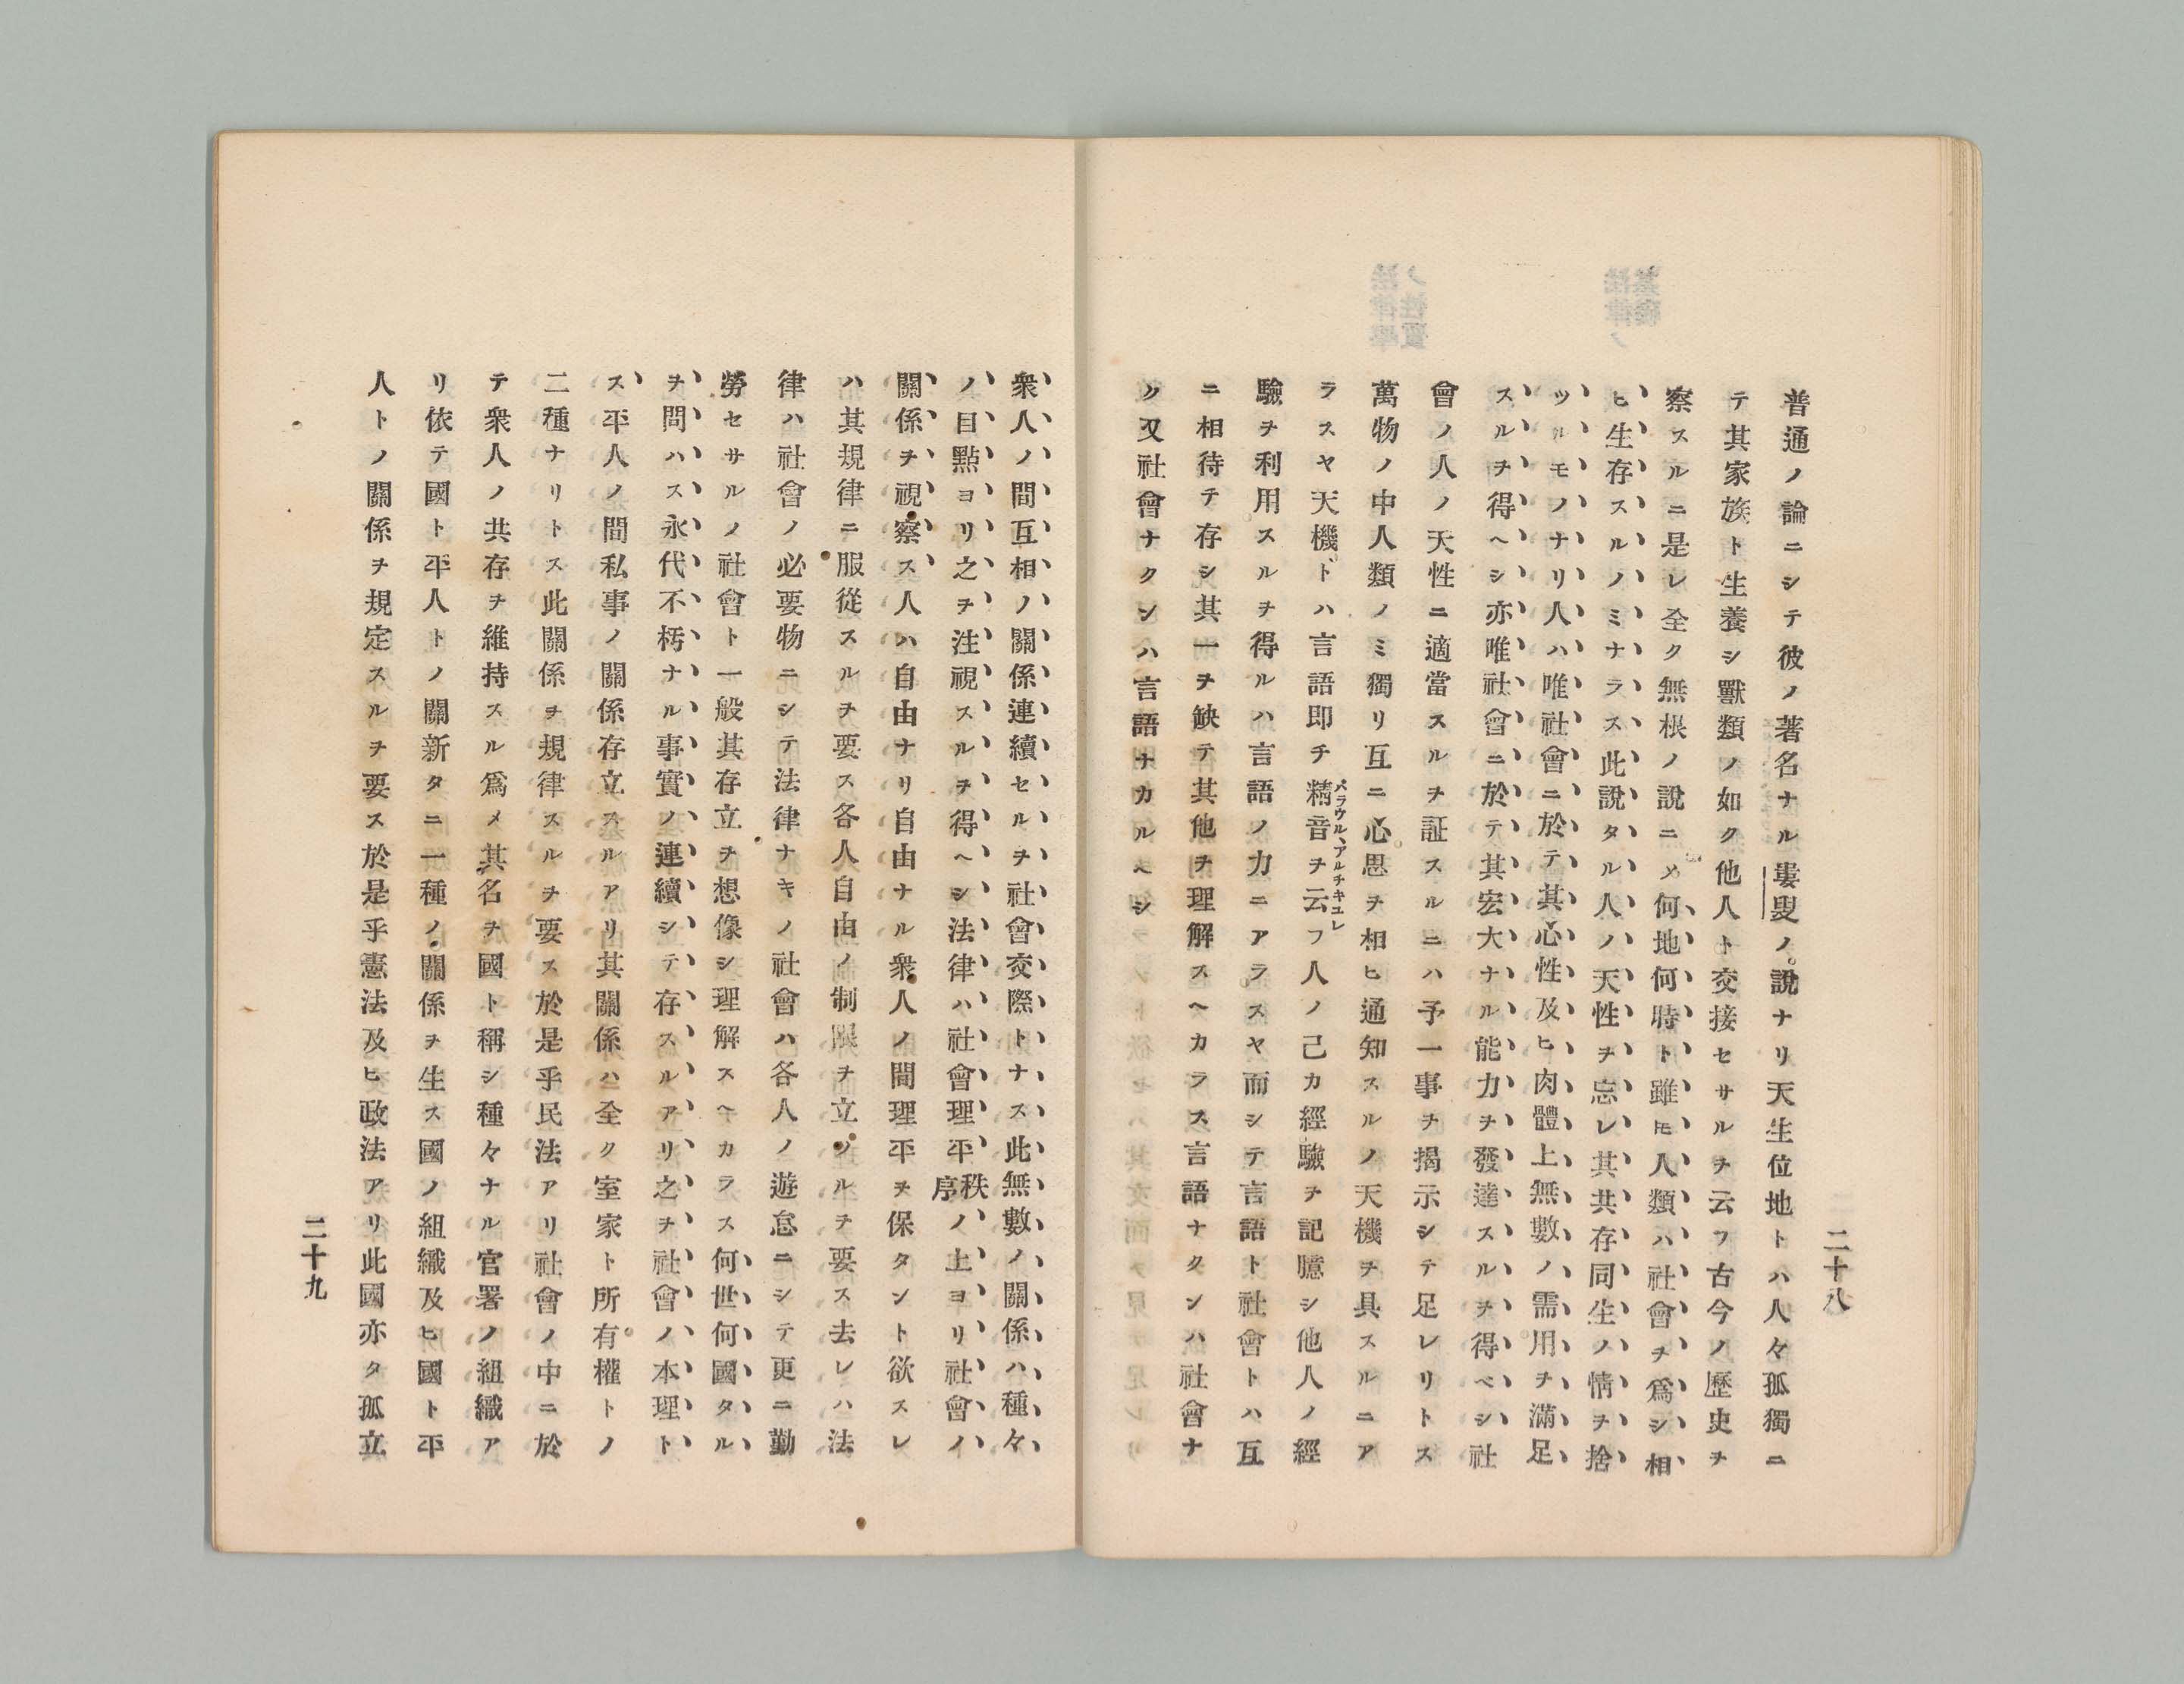 二十八
普通ノ論ニシテ彼ノ著名ナル婁叟ノ說ナリ天生位地トハ人々孤獨ニ
テ其家族ト生養シ獸類ノ如ク他人ト交接セサルヲ云フ古今ノ歷史ヲ
察スルニ是レ全ク無根ノ說ニメ何地何時ト雖𪜈人類ハ社會ヲ爲シ相
ヒ生存スルノミナラス此說タル人ノ天性ヲ忘レ其共存同生ノ情ヲ捨
ツルモノナリ人ハ唯社會ニ於テ其心性及ヒ肉體上無數ノ需用ヲ滿足
スルヲ得ヘシ亦唯社會ニ於テ其宏大ナル能力ヲ發達スルヲ得ベシ社
會ノ人ノ天性ニ適當スルヲ証スルニハ予一事ヲ揭示シテ足レリトス
萬物ノ中人類ノミ獨リ互ニ心思ヲ相ヒ通知スルノ天機ヲ具スルニア
ラスヤ天機トハ言語即チ精音ヲ云フ人ノ己カ經驗ヲ記臆シ他人ノ經
パラウル、アルチキユレ
驗ヲ利用スルヲ得ルハ言語ノ力ニアラスヤ而シテ言語ト社會トハ互
ニ相待テ存シ其一ヲ缺テ其他ヲ理解スヘカラス言語ナクンハ社會ナ
ク又社會ナクンハ言語ナカルヘシ
衆人ノ間互相ノ關係連續セルヲ社會交際トナス此無數ノ關係ハ種々
ノ目點ヨリ之ヲ注視スルヲ得ヘシ法律ハ社會理平秩序ノ上ヨリ社會ノ
關係ヲ視察ス人ハ自由ナリ自由ナル衆人ノ間理平ヲ保タント欲スレ
ハ其規律ニ服從スルヲ要ス各人自由ノ制限ヲ立ツルヲ要ス去レハ法
律ハ社會ノ必要物ニシテ法律ナキノ社會ハ各人ノ遊怠ニシテ更ニ勤
勞セサルノ社會ト一般其存立ヲ想像シ理解スヘカラス何世何國タル
ヲ問ハス永代不朽ナル事實ノ連續シテ存スルアリ之ヲ社會ノ本理ト
ス平人ノ間私事ノ關係存立スルアリ其關係ハ全ク室家ト所有權トノ
二種ナリトス此關係ヲ規律スルヲ要ス於是乎民法アリ社會ノ中ニ於
テ衆人ノ共存ヲ維持スル爲メ其名ヲ國ト稱シ種々ナル官署ノ組織ア
リ依テ國ト平人トノ關新タニ一種ノ關係ヲ生ス國ノ組織及ヒ國ト平
人トノ關係ヲ規定スルヲ要ス於是乎憲法及ヒ政法アリ此國亦タ孤立
二十九